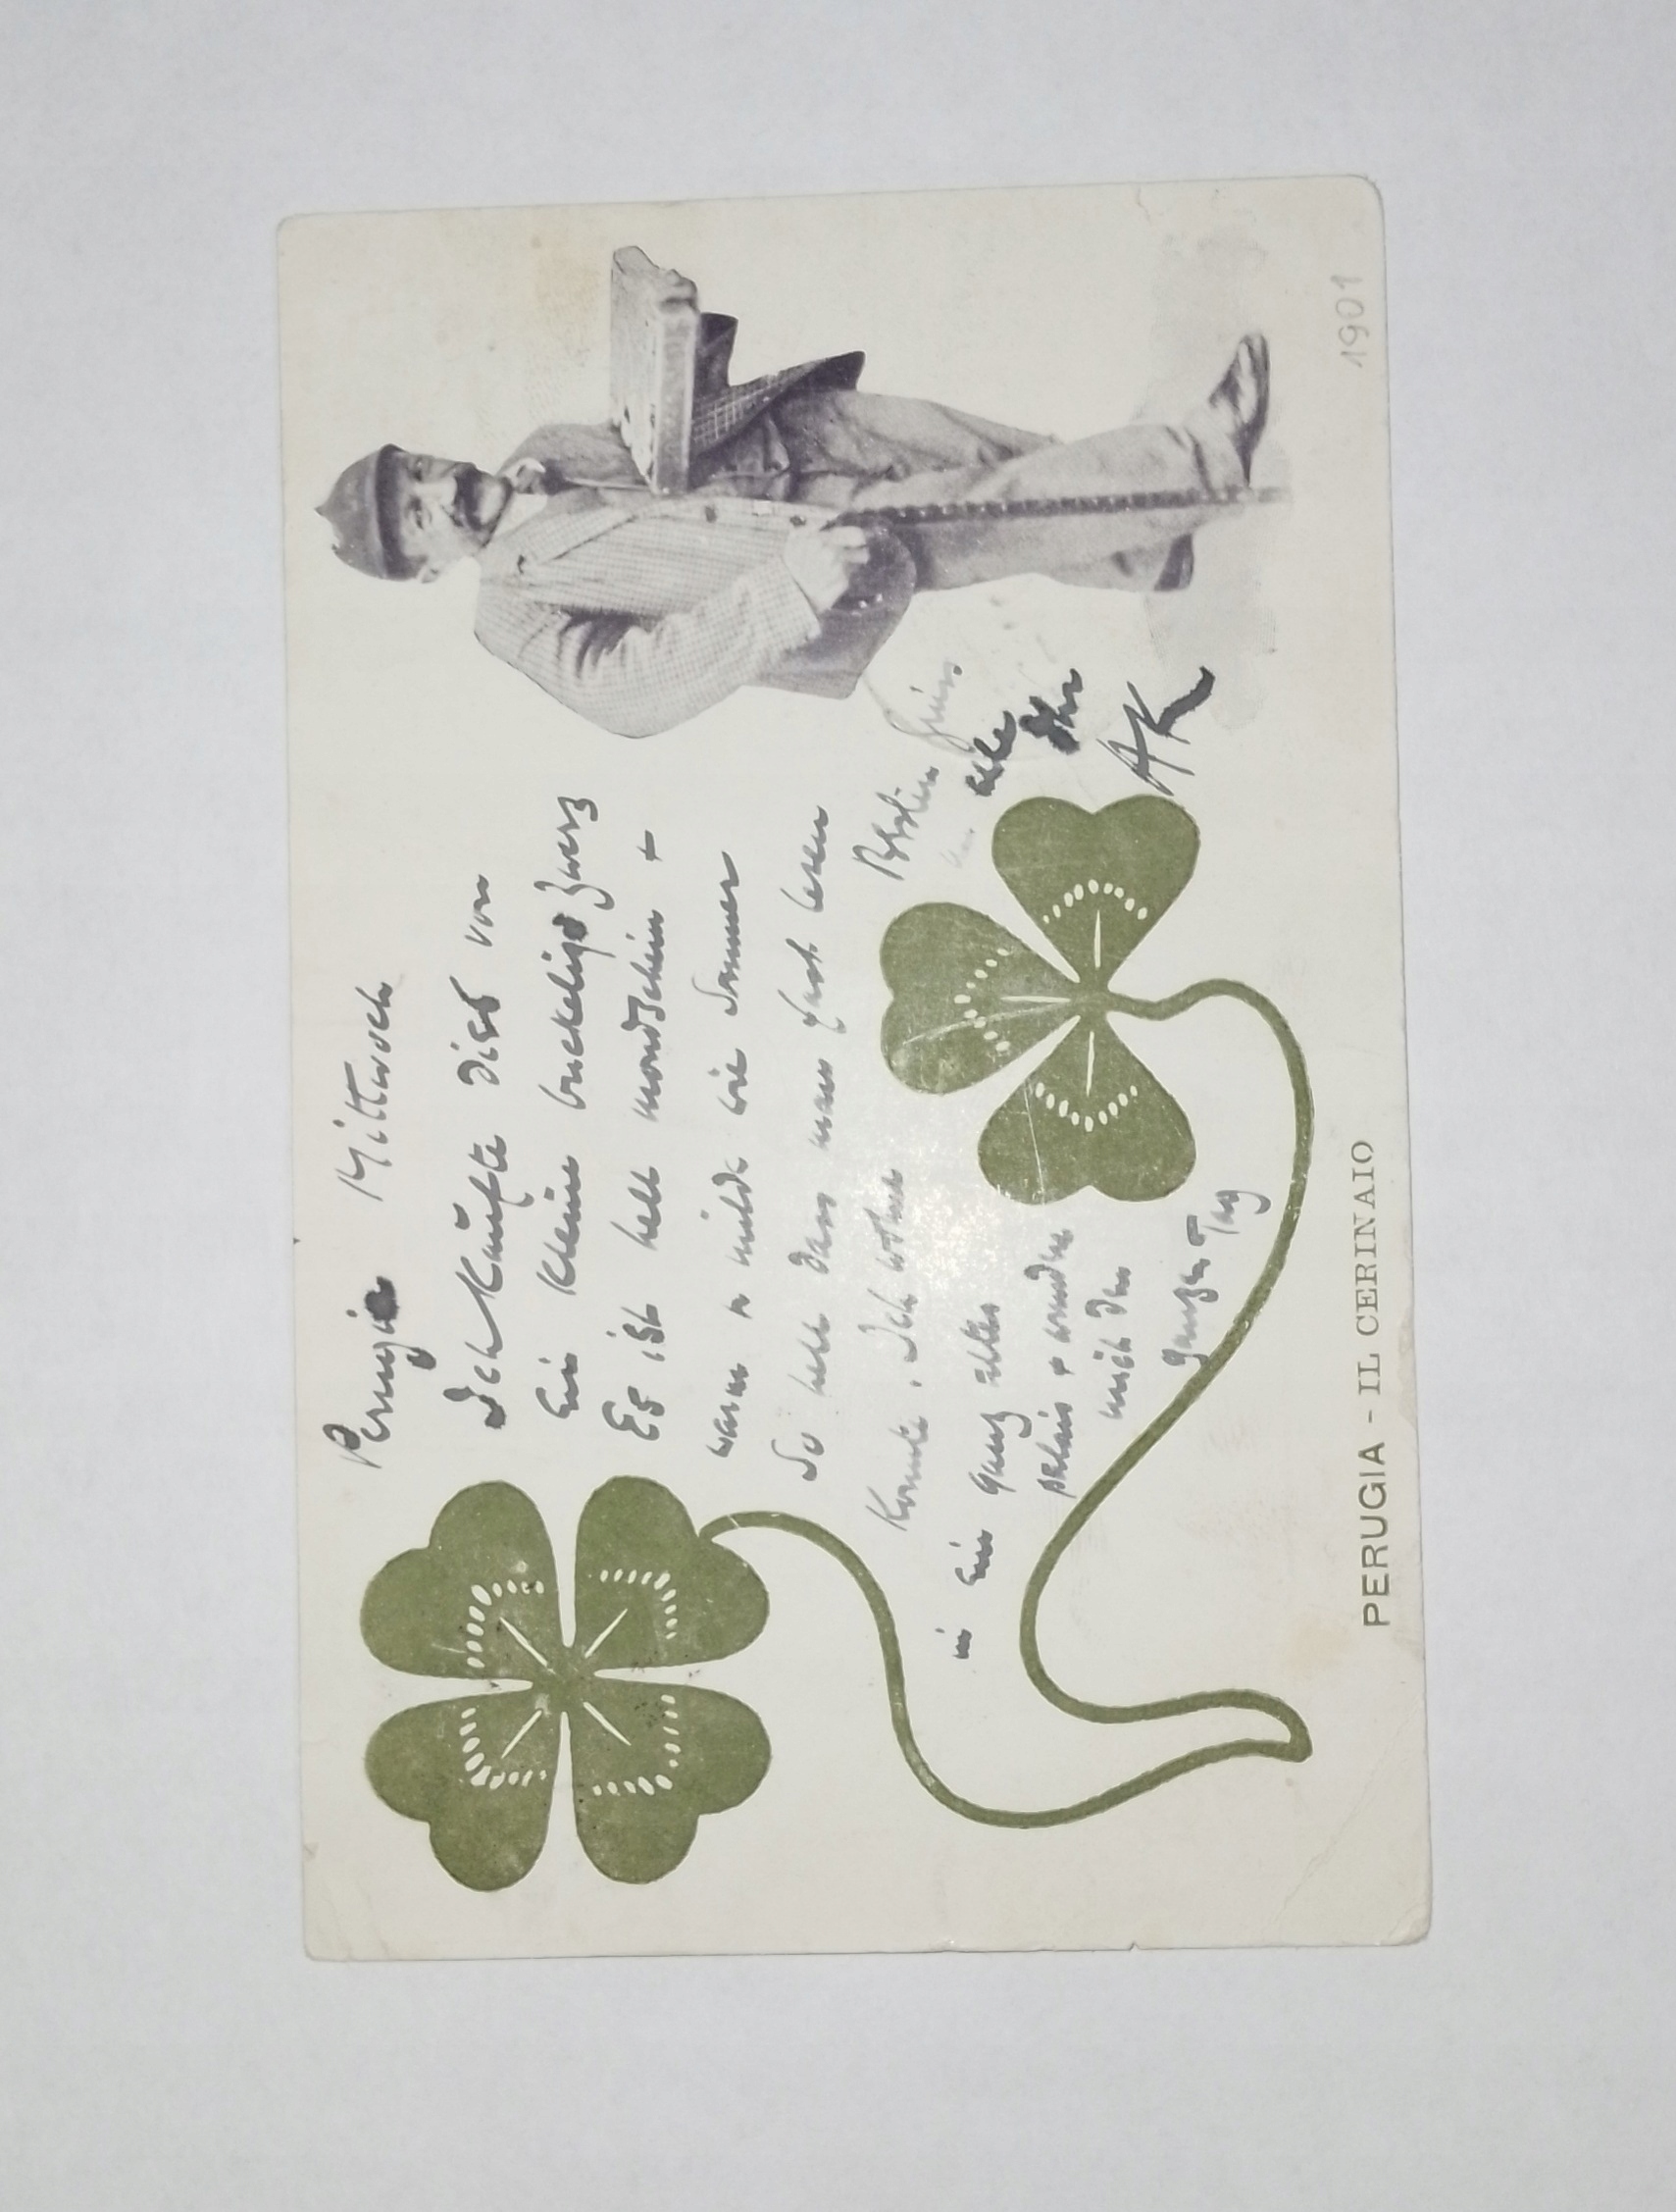 Perugia Mittwoch
Ich kaufte dies von
Ein kleine buckelige Zwerg
Es ist hell mondschein +
warm + milde wie Sommer
So hell dass man fast lesen
Konnte. Ich wohne
in Ein ganz altes
palais + wundre
mich den
ganzen Tag
Besten Gruss
von alle
AK
PERUGIA - IL CERINAIO
1901